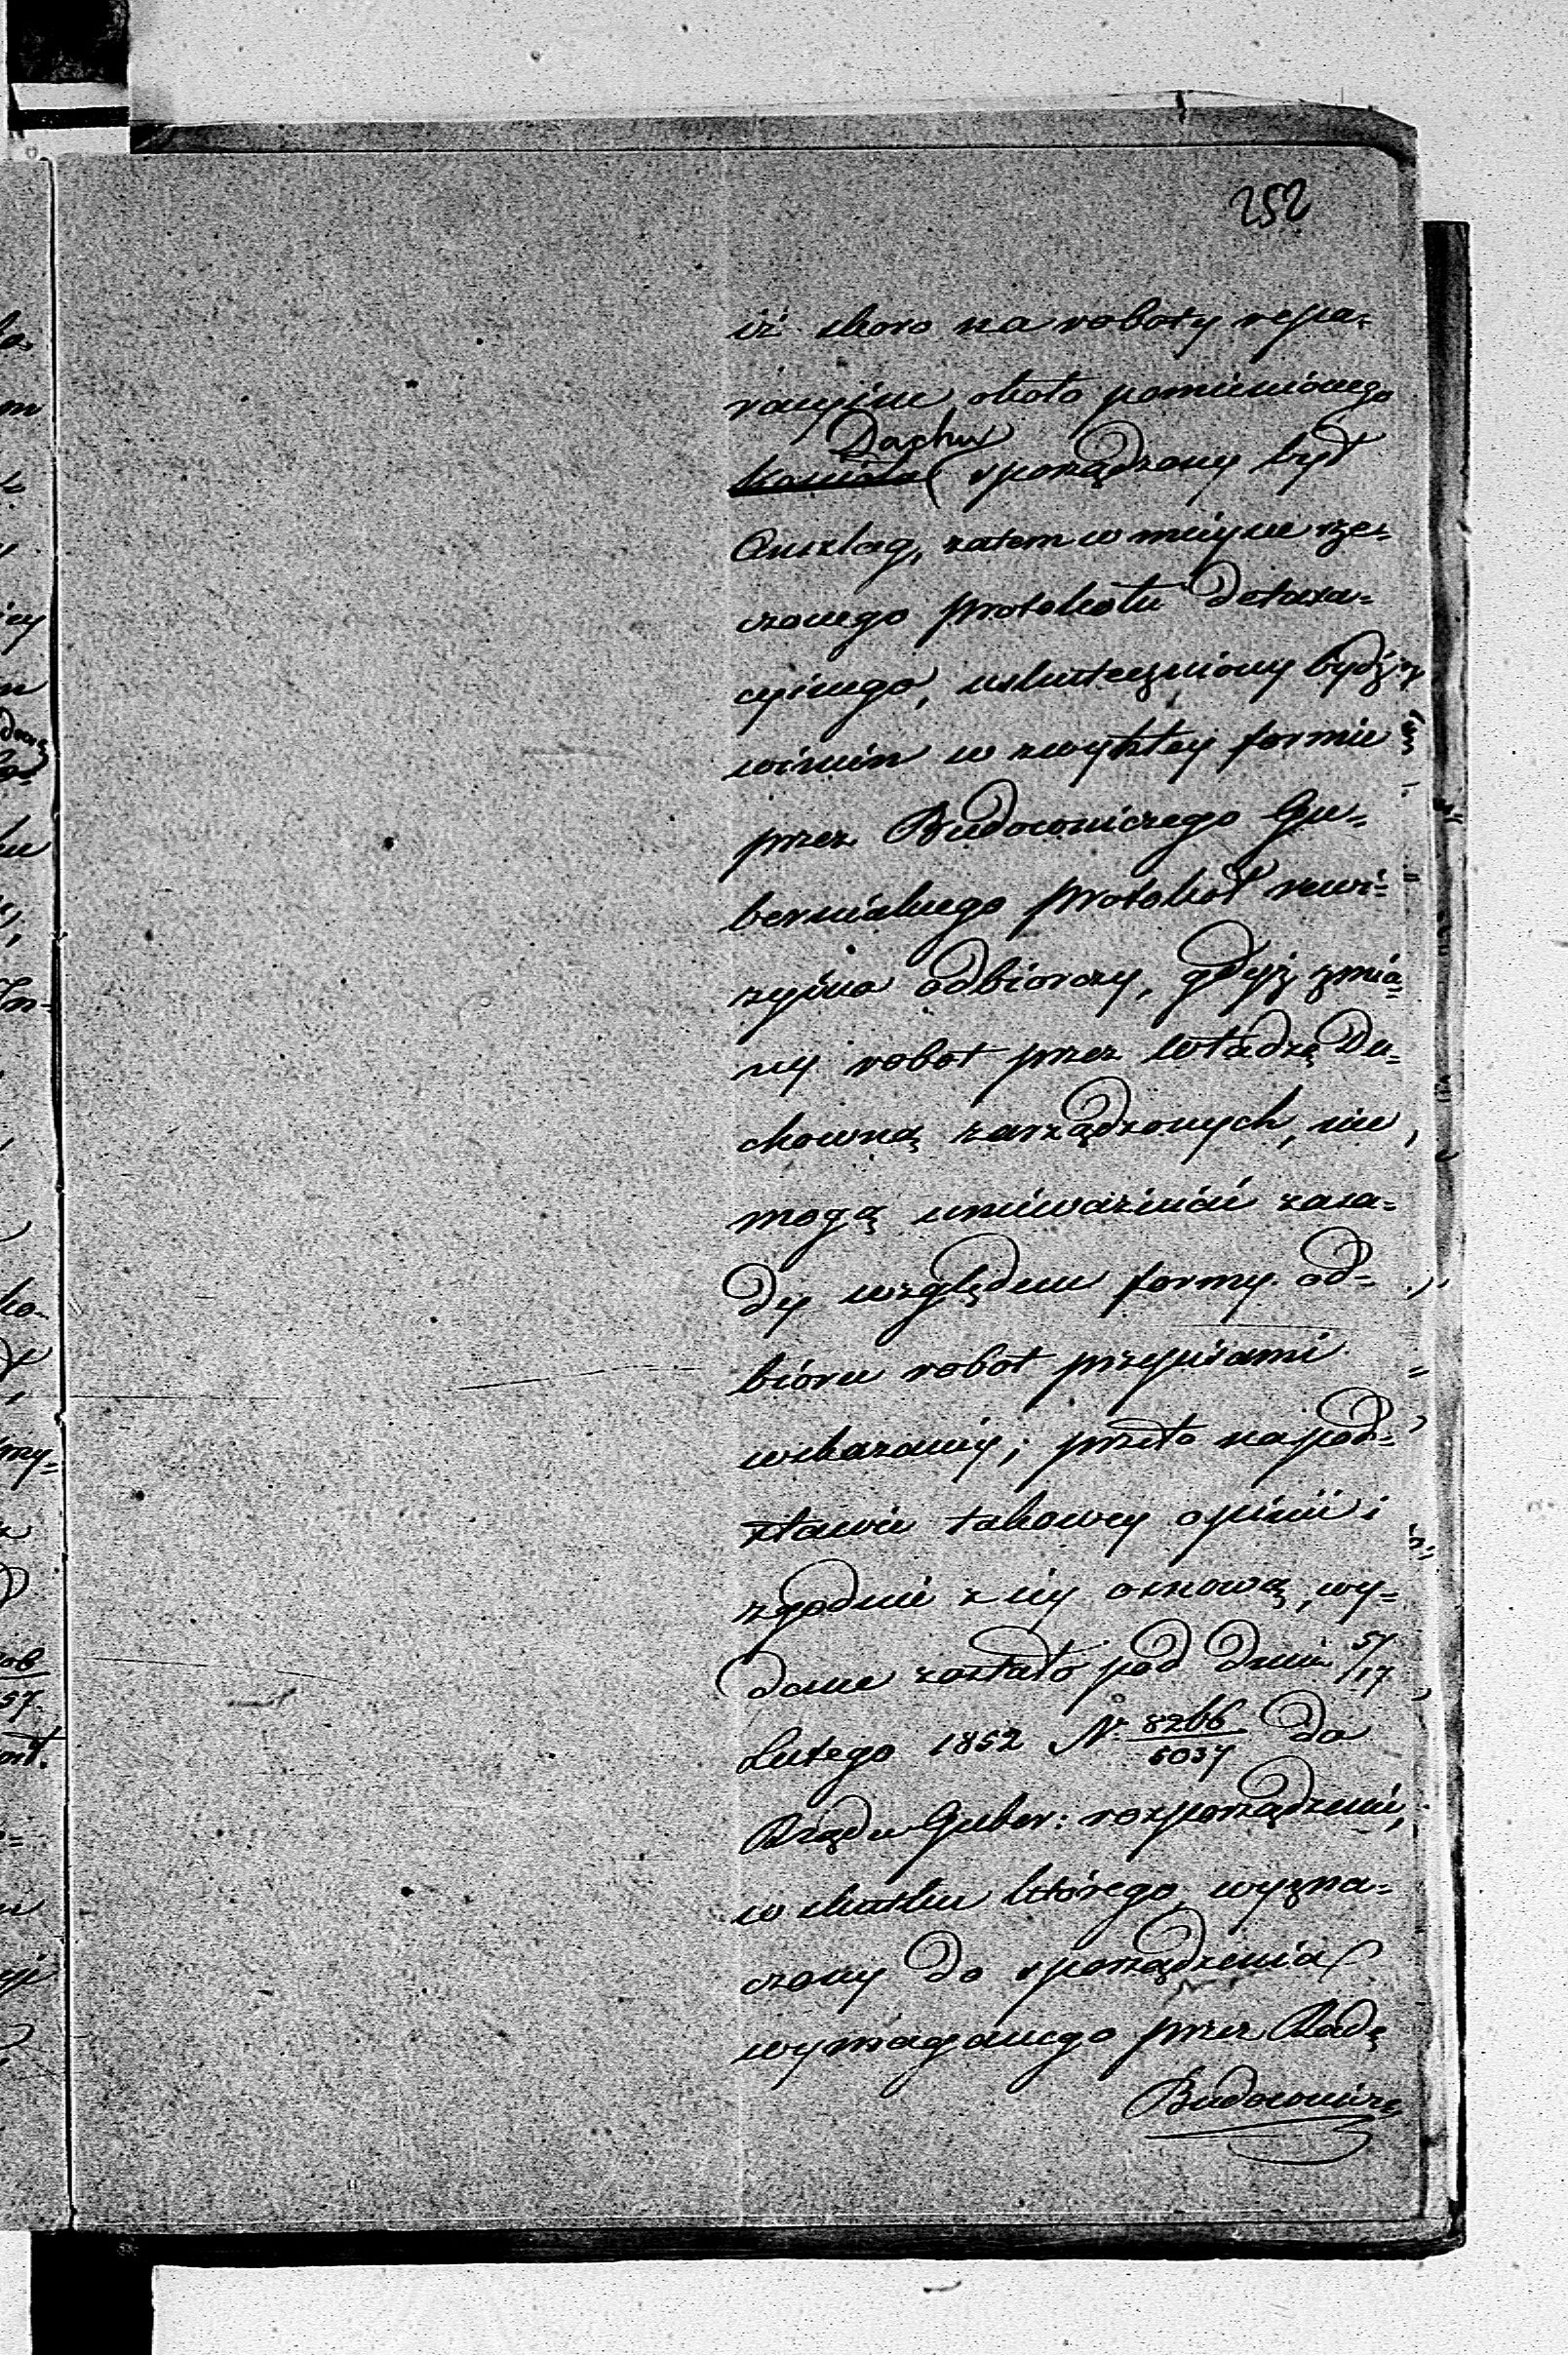 252
iż skoro na roboty repa-
racyjne około pomienionego
Dachu
Kościoła sporządzony był
Anszlag, zatem w miejsce rze-
czonego protokołu detaxa-
cyjnego, uskuteczniony bydź
winien w zwykłey formie
przez Budowniczego Gu-
bernialnego protokół rewi-
zyjno odbiorczy, gdyż zmia-
ny robot przez Władzę Du-
chowną zarządzonych, nie
mogą unieważniać zasa-
dy względem formy od-
bioru robot przepisami
wskazaney; przeto na pod-
stawie takowey opinii i
zgodnie z iey osnową, wy-
dane zostało pod dniem 5/17
Lutego 1852 N. 8266/5037 do
Rządu Guber: rozporządzenie,
w skutku którego wyzna-
czony do sporządzenia
wymaganego przez Radę
Budowniczą